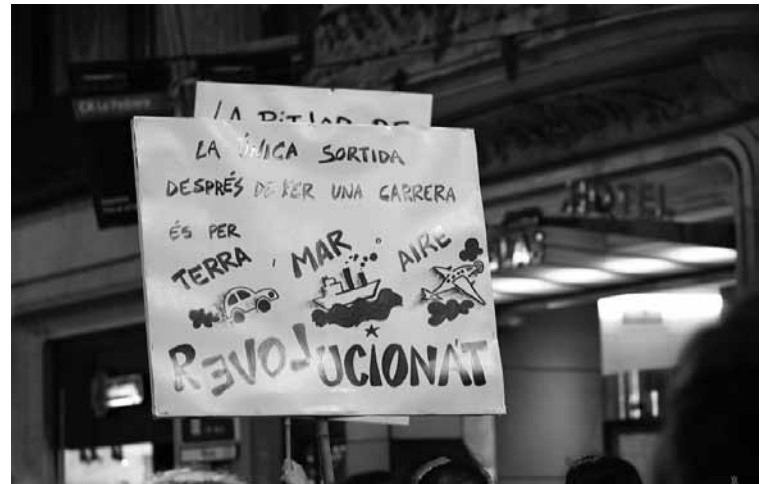 LA
LA ÚNICA SORTIDA
DESPRÉS DE FER UNA CARRERA
ÉS PER
TERRA, MAR AIRE
REVOLUCIONA'T
HOTEL